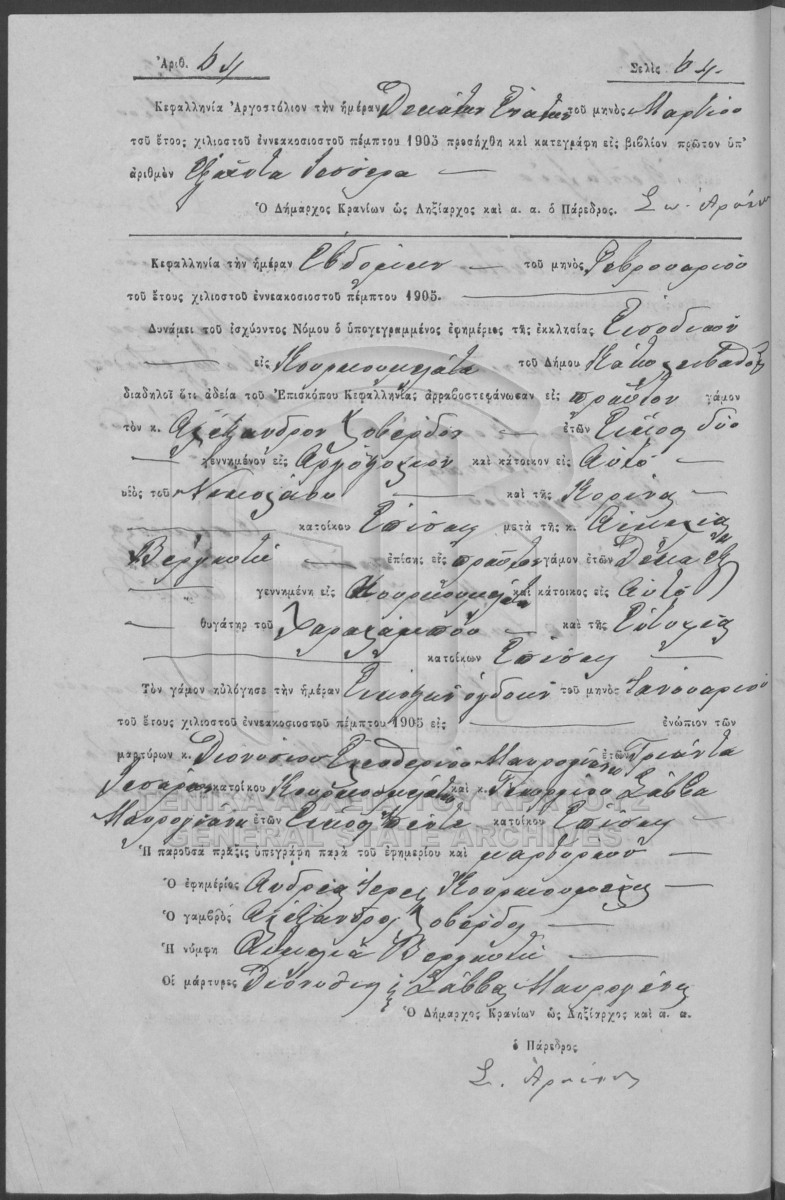 Ἀριθ. 64 Σελὶς 64.
Κεφαλληνία Ἀργοστόλιον τὴν ἡμέραν Δεκάτην Ενάτην τοῦ μηνὸς Μαρτίου
τοῦ ἔτους χιλιοστοῦ ἐννεακοσιοστοῦ πέμπτου 1905 προσήχθη καὶ κατεγράφη εἰς βιβλίον πρῶτον ὑπ'
ἀριθμὸν Εξῆντα τεσσερα —
Ὁ Δήμαρχος Κρανίων ὡς Ληξίαρχος καὶ α. α. ὁ Πάρεδρος.
Κεφαλληνία τὴν ἡμέραν Εβδόμην — τοῦ μηνὸς Φεβρουαρίου
τοῦ ἔτους χιλιοστοῦ ἐννεακοσιοστοῦ πέμπτου 1905. —
Δυνάμει τοῦ ἰσχύοντος Νόμου ὁ ὑπογεγραμμένος ἐφημέριος τῆς ἐκκλησίας Εισοδίων
— εἰς Κουρκουμελάτα τοῦ Δήμου
διαδηλοῖ ὅτι ἀδείᾳ τοῦ Ἐπισκόπου Κεφαλληνίας ἀρραβοστεφάνωσαν εἰς πρῶτον γάμον
τὸν κ. Αλέξανδρον Χοβερδον — ἐτῶν Είκοσι δύο
— γεννημένον εἰς Αργοστόλιον καὶ κάτοικον εἰς Αυτό —
υἱὸς τοῦ Νικολάου — καὶ τῆς Κορίνας —
— κατοίκου Επίσης μετὰ τῆς κ. Αιμιλίας
Βεργωτή — ἐπίσης εἰς πρῶτον γάμον ἐτῶν Δέκα έξ
— γεννημένη εἰς Κουρκουμελάτα καὶ κάτοικος εἰς Αυτό
— θυγάτηρ τοῦ Χαραλάμπου — καὶ τῆς Ευτυχίας
— κατοίκων Επίσης —
Τὸν γάμον ηὐλόγησε τὴν ἡμέραν Εικοστην όγδοην τοῦ μηνὸς Ιανουαρίου
τοῦ ἔτους χιλιοστοῦ ἐννεακοσιοστοῦ πέμπτου 1905 εἰς — ἐνώπιον τῶν
μαρτύρων κ. Διονυσίου Ελευθερίου Μαυρογιάννη ἐτῶν Τριάντα
Τεσσάρων κατοίκου Κουρκουμελάτων καὶ κ. Γεωργίου Σάββα
Μαυρογιάννη ἐτῶν Είκοσι πέντε κατοίκου Επίσης —
Ἡ παροῦσα πρᾶξις ὑπεγράφη παρὰ τοῦ ἐφημερίου καὶ μαρτύρων —
Ὁ ἐφημέριος Ανδρέας Ιερεύς —
Ὁ γαμβρὸς Αλέξανδρος Χοβερδος —
Ἡ νύμφη Αιμιλία Βεργωτή —
Οἱ μάρτυρες Διονύσιος Σάββας Μαυρογιάννης
Ὁ Δήμαρχος Κρανίων ὡς Ληξίαρχος καὶ α. α.
ὁ Πάρεδρος
ΓΕΝΙΚΑ ΑΡΧΕΙΑ ΤΟΥ ΚΡΑΤΟΥΣ
GENERAL STATE ARCHIVES